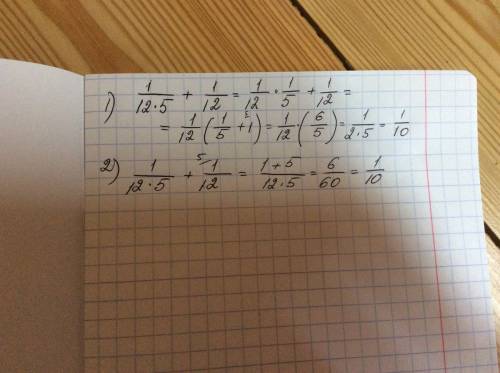 1) 1/(12·5) + 1/12 = 1/12 · 1/5 + 1/12 =
= 1/12 (1/5 + 1⁵) = 1/12 (6/5) = 1/(2·5) = 1/10
2) 1/(12·5) + ⁵1/12 = (1+5)/(12·5) = 6/60 = 1/10